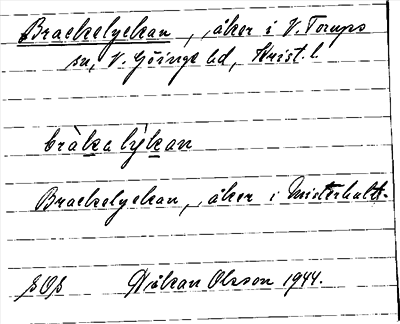 Brackelyckan, åker i V. Torups
sn, V. Göinge hd, Krist. l.
bràka lỳkan
Brackelyckan, åker i Misterhult.
Håkan Olsson 1944.